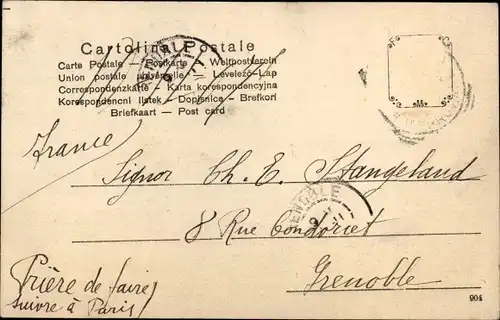 Cartolina Postale
Carte Postale — Postkarte — Weltpostverein
Union postale universelle — Levelező-Lap
Correspondenzkarte — Karta korespondencyjna
Korespondencni listek — Dopisnice — Brefkort
Briefkaart — Post card
France
Signor Ch. E. Stangeland
GRENOBLE
8 Rue Condorcet
Grenoble
Prière de faire
suivre à Paris
904